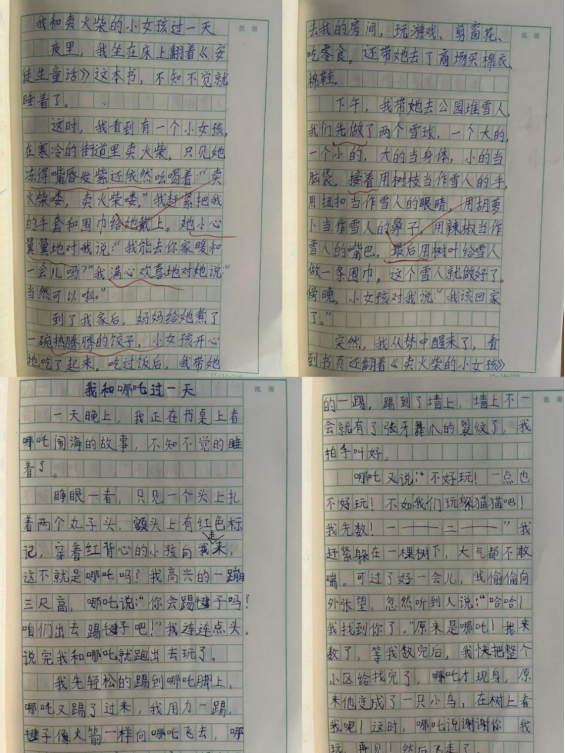 我和卖火柴的小女孩过一天
夜里，我坐在床上翻着《安
徒生童话》这本书，不知不觉就
睡着了。
这时，我看到有一个小女孩，
在寒冷的街道里卖火柴，只见她
冻得嘴唇发紫还依然吆喝着：“卖
火柴喽，卖火柴喽。”我赶紧把我
的手套和围巾给她戴上，她小心
翼翼地对我说：“我能去你家暖和
一会儿吗？”我满心欢喜地对她说“
当然可以啦。”
到了我家后，妈妈给她煮了
一碗热腾腾的饺子，小女孩开心
地吃了起来，吃过饭后，我带她
去我的房间，玩游戏、剪窗花、
吃零食。还带她去了商场买棉衣、
棉鞋。
下午，我带她去公园堆雪人，
我们先做了两个雪球，一个大的，
一个小的，大的当身体，小的当
脑袋，接着用树枝当作雪人的手，
用纽扣当作雪人的眼睛，用胡萝
卜当作雪人的鼻子，用辣椒当作
雪人的嘴巴，最后用树叶给雪人
做一条围巾，这个雪人就做好了。
傍晚，小女孩对我说“我该回家
了。”
突然，我从梦中醒来了，看
到书页还翻着《卖火柴的小女孩》
我和哪吒过一天
一天晚上，我正在书桌上看
哪吒闹海的故事，不知不觉的睡
着了。
睁眼一看，只见一个头上扎
着两个丸子头，额头上有红色标
记，穿着红背心的小孩向我来，
这不就是哪吒吗？我高兴的一蹦
三尺高，哪吒说：“你会踢毽子吗？
咱们出去踢毽子吧！”我连连点头。
说完我和哪吒就跑出去玩了。
我先轻松的踢到哪吒脚上，
哪吒又踢了过来，我用力一踢，
毽子像火箭一样向哪吒飞去，哪
的一踢，踢到了墙上，墙上不一
会就有了张牙舞爪的裂纹了，我
拍手叫好。
哪吒又说：“不好玩！一点也
不好玩！不如我们玩躲猫猫吧！
我先数！一——二——”我
赶紧躲在一棵树下，大气都不敢
喘。可过了好一会儿，我偷偷向
外张望，忽然听到人说：“哈哈！
我找到你了。”原来是哪吒！我来
数了，等我数完后，我快把整个
小区给找完了，哪吒才现身，原
来他变成了一只小鸟，在树上看
我呢！这时，哪吒说谢谢你 我
玩，再见！然后飞走了